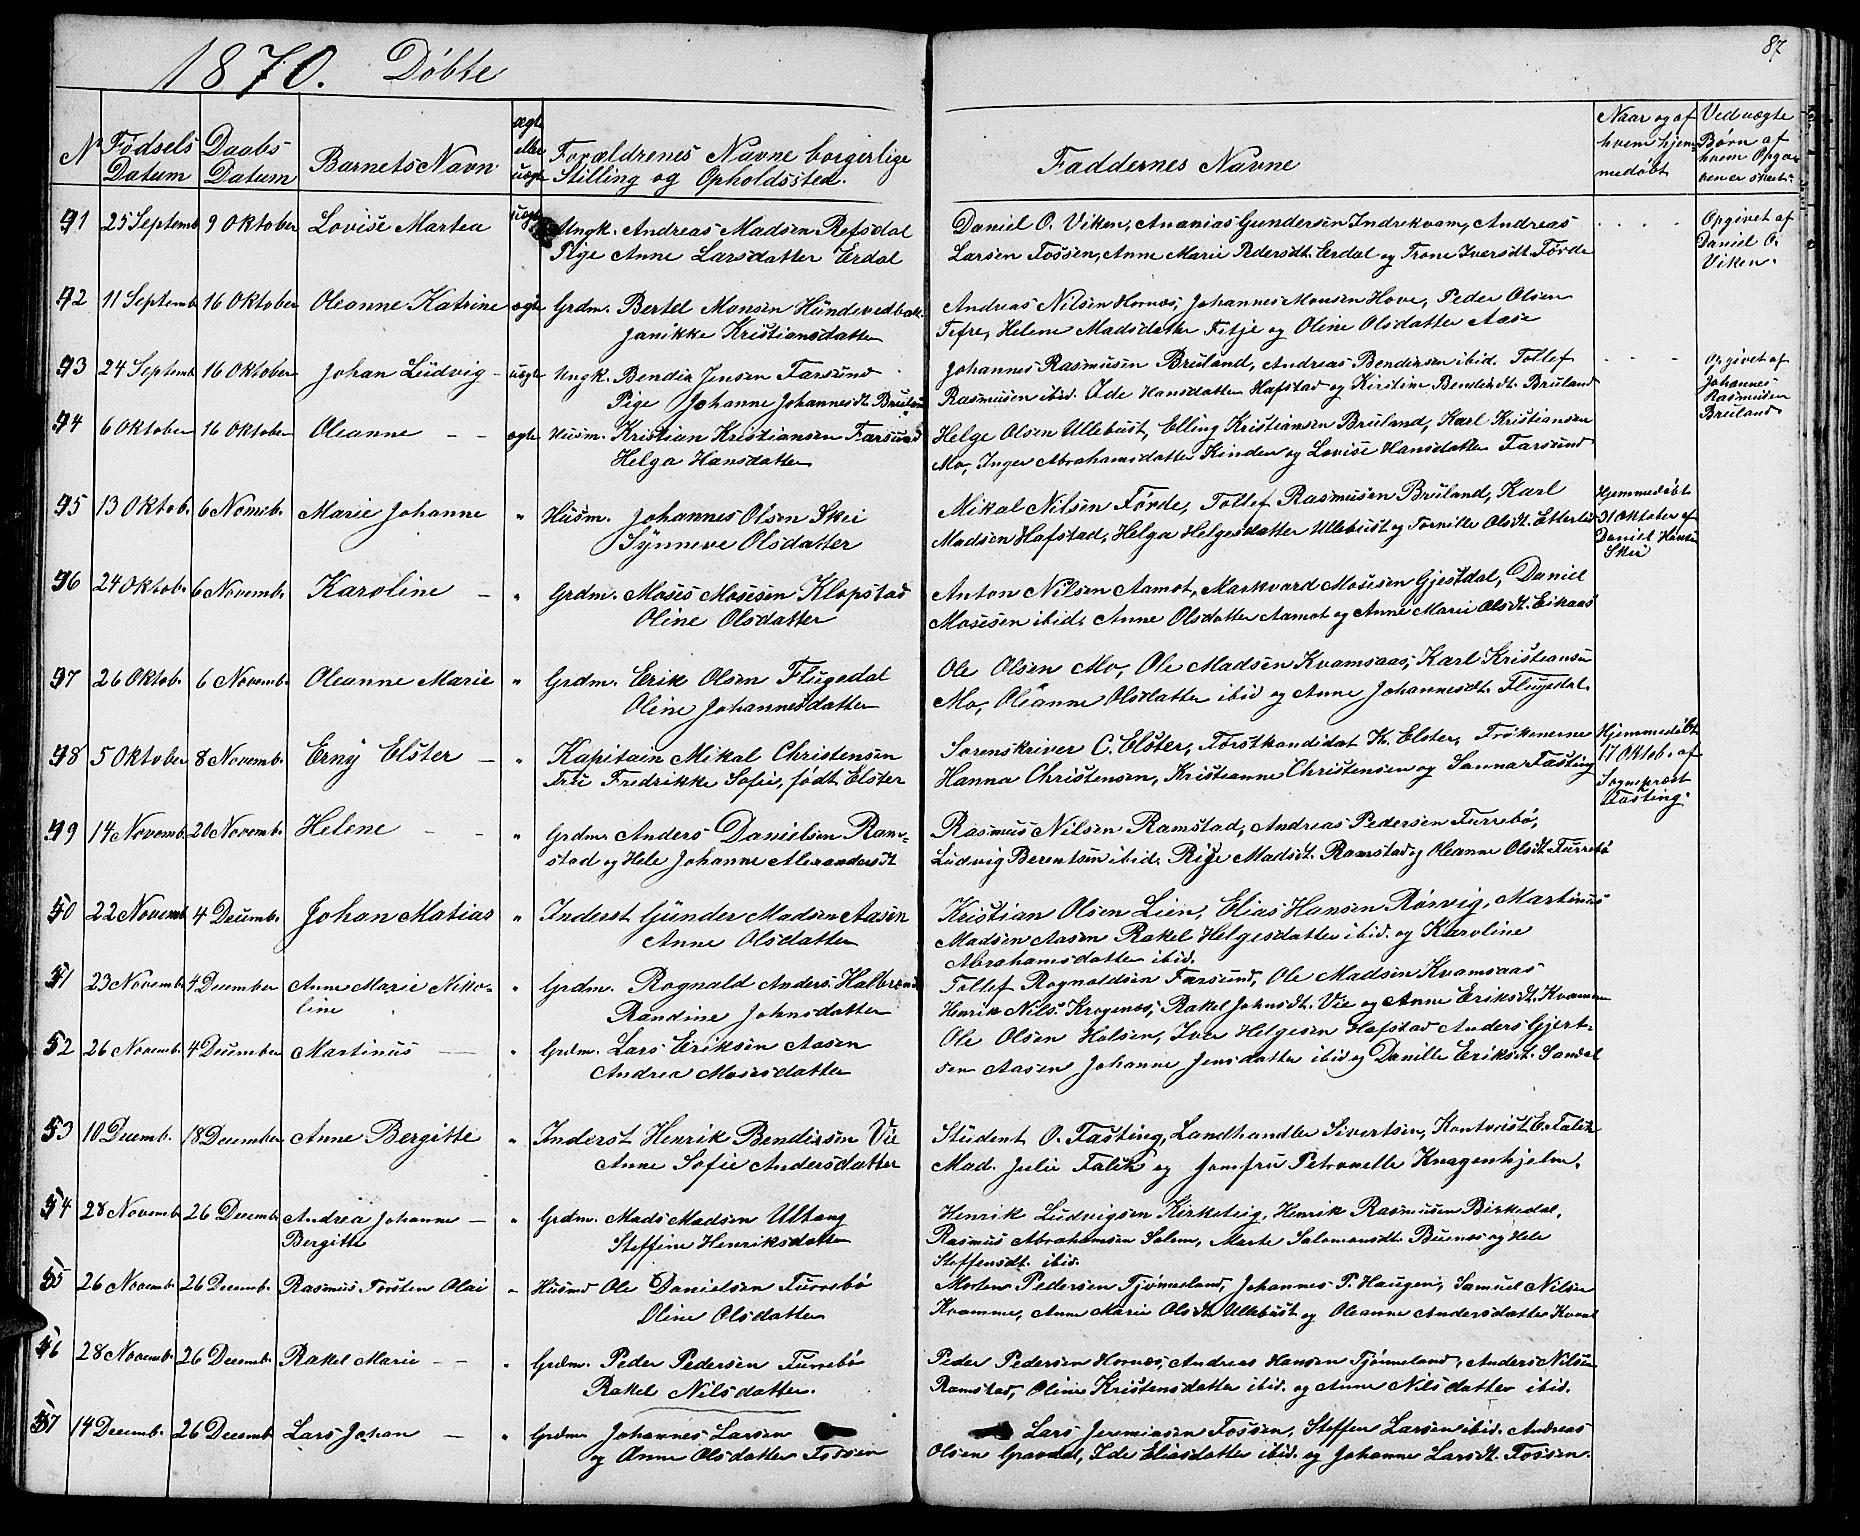 1870. Döbte
87
No
Födsels Datum
Daabs Datum
Barnets Navn
ægte eller uægte
Forældrenes Navne borgerlige Stilling og Opholdssted.
Faddernes Navne
Naar og af hvem hjemmedöbt
Ved uægte Børn af hvem Opgaven er skeet.
91 25 Septemb 9 Oktober Lovise Martea uægte Ungk. Andreas Madsen Refsdal Daniel O. Viken, Ananias Gundersen Indrekvam, Andreas Opgivet af
Pige Anne Larsdatter Erdal Larsen Fossen, Anne Marie Pedersdt. Erdal og Trone Iversdt. Förde Daniel O.
Viken.
92 11 Septemb 16 Oktober Oleanne Katrine ægte Grdm. Bertel Monsen Hundvedbak. Andreas Nilsen Hornæs, Johannes Monsen Hove, Peder Olsen
Janikke Kristiansdatter Tefre, Helene Madsdatter Fitje og Oline Olsdatter Aase
93 24 Septemb 16 Oktober Johan Ludvig - uægte Ungk. Bendix Jensen Farsund Johannes Rasmusen Bruland, Andreas Bendixsen ibid. Tollef Opgivet af
Pige Johanne Johannesdt. Bruland Rasmusen ibid. Ide Hansdatter Hafstad og Kirstine Bendixdt. Bruland Johannes
Rasmusen
Bruland
94 6 Oktober 16 Oktober Oleanne - - ægte Husm. Kristian Kristiansen Farsund Helge Olsen Ullebust, Elling Kristiansen Bruland, Karl Kristiansen
Helga Hansdatter Mo, Inger Abrahamsdatter Kinden og Lovise Hansdatter Farsund
95 13 Oktob. 6 Nomeb. Marie Johanne " Husm. Johannes Olsen Skei Mikal Nilsen Förde, Tollef Rasmusen Bruland, Karl Hjemmedöbt
Synneve Olsdatter Madsen Hafstad, Helga Helgesdatter Ullebust og Pernille Olsdt. Etterlid 31 Oktober af
Daniel Hansen
Skei
96 24 Oktob. 6 Novemb. Karoline - " Grdm. Moses Mosesen Klopstad Anton Nilsen Aamot, Markvard Mosesen Gjestdal, Daniel
Oline Olsdatter Mosesen ibid. Anne Olsdatter Aamot og Anne Marie Olsdt. Eikaas
97 26 Oktob. 6 Novemb. Oleanne Marie " Grdm. Erik Olsen Flugedal Ole Olsen Mo, Ole Madsen Kvamsaas, Karl Kristiansen
Oline Johannesdatter Mo, Oleanne Olsdatter ibid og Anne Johannesdt. Flugedal.
98 5 Oktober 8 Novemb. Erny Elster - " Kapitain Mikal Christensen Sorenskriver C. Elster, Forstkandidat K. Elster, Frökenerne Hjemmedöbt
Fru Fredrikke Sofie, födt Elster Hanna Christensen, Kristianne Christensen og Sanna Fasting 17 Oktob. af
Sognepræst
Fasting.
99 14 Novemb. 20 Novemb. Helene - - " Grdm. Anders Danielsen Ram- Rasmus Nilsen Ramstad, Andreas Pedersen Furrebö,
stad og Hele Johanne Alexandersdt Ludvig Berentsen ibid. Madsdt. Ramstad og Oleanne Olsdt. Furrebö
50 22 Novemb 4 Decemb. Johan Matias " Inderst Gunder Madsen Aasen Kristian Olsen Lien, Elias Hansen Rørvig, Martinus
Anne Olsdatter Madsen Aasen Rakel Helgesdatter ibid. og Karoline
Abrahamsdatter ibid.
51 23 Novemb 4 December Anne Marie Niko- " Grdm. Rognald Anders. Halbrend Tollef Rognaldsen Farsund, Ole Madsen Kvamsaas
line Randine Johnsdatter Henrik Nils. Krogenæs, Rakel Johnsdt. Vie og Anne Eriksdt. Kvamme
52 26 Novemb. 4 December Martinus - " Grdm. Lars Eriksen Aasen Ole Olsen Holsen, Iver Helgesen Hafstad Anders Gjert-
Andrea Mosesdatter sen Aasen Johanne Jensdatter ibid og Danille Eriksdt. Sandal
53 10 Decemb. 18 December Anne Bergitte " Inderst Henrik Bendixsen Vie Student O. Fasting, Landhandler Sivertsen, Kontorist E. Falck
Anne Sofie Andersdatter Mad. Julie Falck og Jomfru Petronelle Knagenhjelm.
54 28 Novemb 26 Decemb. Andrea Johanne - " Grdm. Mads Madsen Ultang Henrik Ludvigsen Kirketeig, Henrik Rasmusen Birkedal,
Bergitte Steffine Henriksdatter Rasmus Abrahamsen Solem, Marte Salomonsdt. Buenæs og Hele
Steffensdt. ibid.
55 26 Novemb. 26 Decemb. Rasmus Torsten Olai " Husmd Ole Danielsen Furrebö Morten Pedersen Tjönneland, Johannes P. Haugen, Samuel Nilsen
Oline Olsdatter Kvamme, Anne Marie Olsdt. Ullebust og Oleanne Andersdatter Kvaal
56 28 Novemb. 26 Decemb. Rakel Marie - - " Grdm. Peder Pedersen Furrebö Peder Pedersen Hornæs, Andreas Hansen Tjönneland, Anders Nilsen
Rakel Nilsdatter. Ramstad, Oline Kristensdatter ibid. og Anne Nilsdatter ibid.
57 14 Decemb. 26 Decemb Lars Johan - " Grdm. Johannes Larsen Lars Jeremiasen Fossen, Steffen Larsen ibid. Andreas
og Anne Olsdatter Fossen Olsen Gravdal, Ide Eliasdatter ibid. og Johanne Larsdt. Fossen.